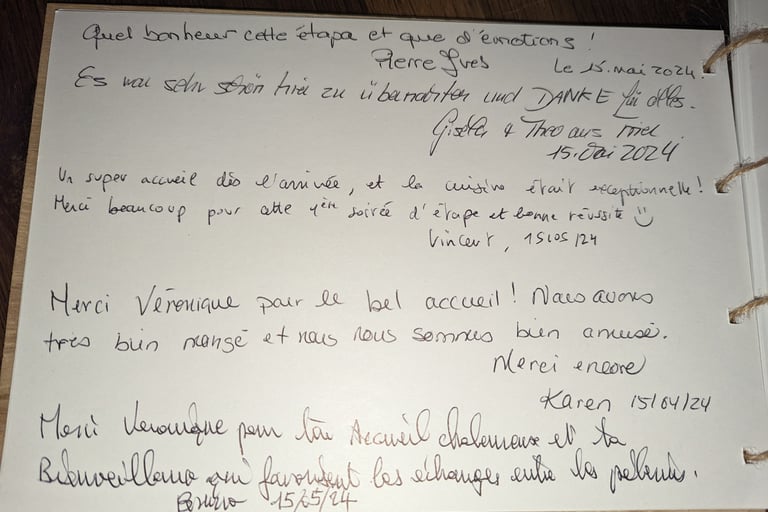 Quel bonheur cette étapa et que d'émotions !
Pierre Yves Le 15. mai 2024.
Es war sehr schön hier zu übernachten und DANKE für alles.
Gisela & Theo aus
15. Mai 2024
Un super accueil dès l'arrivée, et la cuisine était exceptionnelle !
Merci beaucoup pour cette 1ère soirée d'étape et bonne réussite ☺
Vincent, 15/05/24
Merci Véronique pour le bel accueil ! Nous avons
très bien mangé et nous nous sommes bien amusé.
Merci encore
Karen 15/04/24
Merci Veronique pour ton Accueil chaleureux et ta
Bienveillance qui favorisent les échanges entre les pelerins.
Bruno 15/05/24